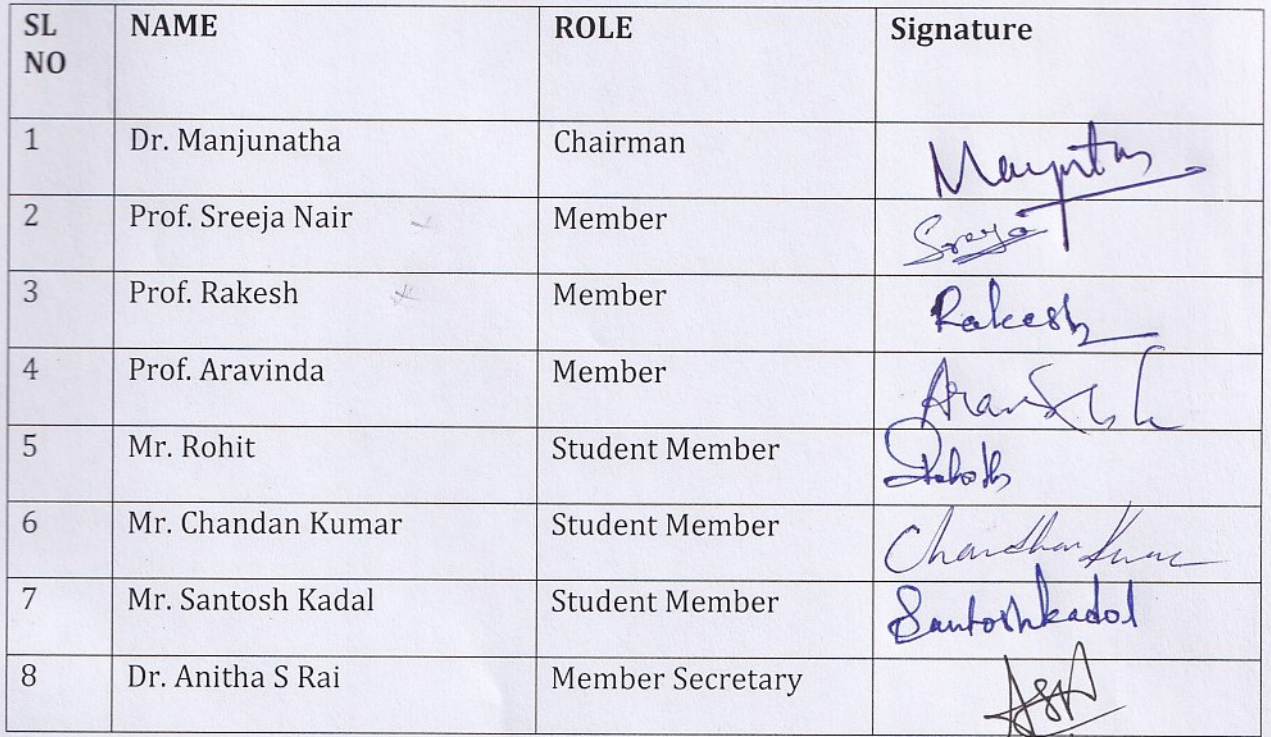 SL NO NAME ROLE Signature
1 Dr. Manjunatha Chairman
2 Prof. Sreeja Nair Member Sreeja
3 Prof. Rakesh Member Rakesh
4 Prof. Aravinda Member
5 Mr. Rohit Student Member
6 Mr. Chandan Kumar Student Member Chandhan Kumar
7 Mr. Santosh Kadal Student Member Santoshkadol
8 Dr. Anitha S Rai Member Secretary